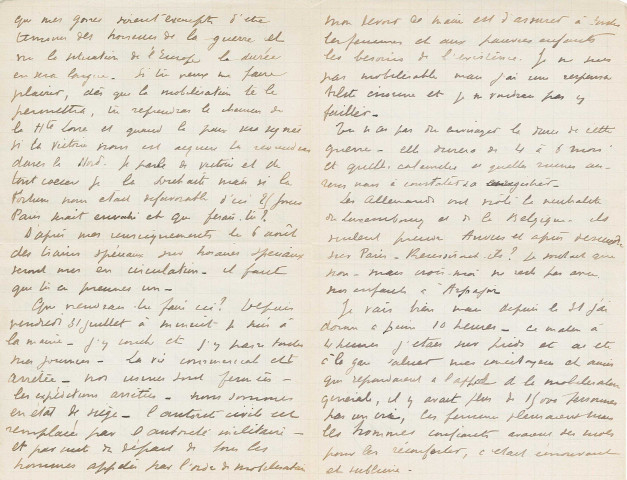 que mes gosses soient exempts d'être
témoins des horreurs de la guerre et
vu la situation de l'Europe la durée
en sera longue. Si tu veux me faire
plaisir, dès que la mobilisation te le
permettra, tu reprendras le chemin de
la Hte Loire et quand la paix sera signée
si la victoire nous est acquise tu reviendras
dans le Nord. Je parle de victoire et de
tout coeur je la souhaite mais si la
fortune nous était défavorable d'ici 8 jours
Paris serait envahi et que ferais-tu ?
D'après mes renseignements le 6 août
des trains spéciaux aux horaires spéciaux
seront mis en circulation - il faut
que tu en prennes un -
Que viendrais-tu faire ici ? Depuis
vendredi 31 juillet à minuit je suis à
la mairie - j'y couche et j'y passe toutes
mes journées - La vie commerciale est
arrêtée - nos usines sont fermées -
les expéditions arrêtées - nous sommes
en état de siège - l'autorité civile est
remplacée par l'autorité militaire -
et par suite de départ de tous les
hommes appelés par l'ordre de mobilisation
mon devoir de maire est d'assurer à toutes
les femmes et aux pauvres enfants
les besoins de l'existence. Je ne suis
pas mobilisable mais j'ai une responsa
bilité énorme et je ne voudrais pas y
faillir -
Tu n'as pas du envisager la durée de cette
guerre - elle durera de 4 à 6 mois
et quelles calamités et quelles ruines au-
rons nous à constater
Les Allemands ont violé la neutralité
du Luxembourg et de la Belgique - ils
veulent prendre Anvers et après descendre
sur Paris - Réussiront-ils ? Je souhaite que
non - mais crois-moi ne reste pas avec
nos enfants à Arpajon
Je vais bien mais depuis le 31 j'ai
dormi à peine 10 heures - ce matin à
4 heures j'étais sur pieds et ai été
à la gare saluer mes concitoyens et amis
qui répondaient à l'appel de la mobilisation
générale, il y avait plus de 1500 personnes
pas un cri, les femmes pleuraient mais
les hommes confiants avaient des mots
pour les réconforter, c'était émouvant
et sublime -